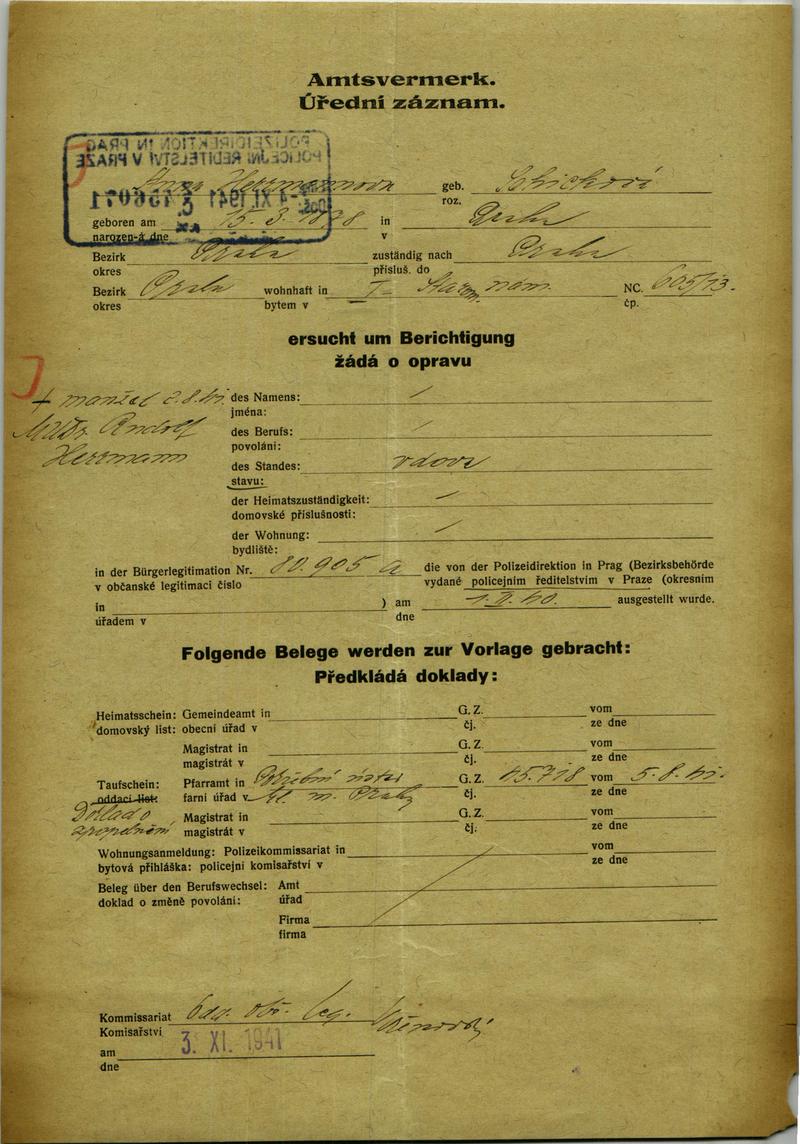 Amtsvermerk.
Úřední záznam.
POLIZEIDIREKTION IN PRAG
POLICEJNÍ ŘEDITELSTVÍ V PRAZE
-4.XI.1941
Anna Herrmannova geb. roz.
geboren am narozen-á dne 15. 3. in v Praha
Bezirk okres Praha zuständig nach přísluš. do Praha
Bezirk okres Praha wohnhaft in bytem v I- Starom. nám. NC. čp. 605/13.
ersucht um Berichtigung
žádá o opravu
+ manžel 2.8.41.
MUDr Rudolf
Herrmann
des Namens: /
jména:
des Berufs: /
povolání:
des Standes: vdova
stavu:
der Heimatszuständigkeit: /
domovské příslušnosti:
der Wohnung: /
bydliště:
in der Bürgerlegitimation Nr. 80.905 a die von der Polizeidirektion in Prag (Bezirksbehörde
v občanské legitimaci číslo vydané policejním ředitelstvím v Praze (okresním
in ) am 1.II.40. ausgestellt wurde.
úřadem v dne
Folgende Belege werden zur Vorlage gebracht:
Předkládá doklady:
Heimatsschein: Gemeindeamt in G. Z. vom
domovský list: obecní úřad v čj. ze dne
Magistrat in G. Z. vom
magistrát v čj. ze dne
Taufschein: Pfarramt in Pohřební ústav G. Z. 45.718 vom 5.8.41.
oddací list: farní úřad v hl. m. Prahy čj. ze dne
Doklad o
zpopelnění
Magistrat in G. Z. vom
magistrát v čj. ze dne
Wohnungsanmeldung: Polizeikommissariat in vom
bytová přihláška: policejní komisařství v ze dne
Beleg über den Berufswechsel: Amt
doklad o změně povolání: úřad
Firma
firma
Kommissariat Odd. obč. leg.
Komisařství
am 3. XI. 1941
dne